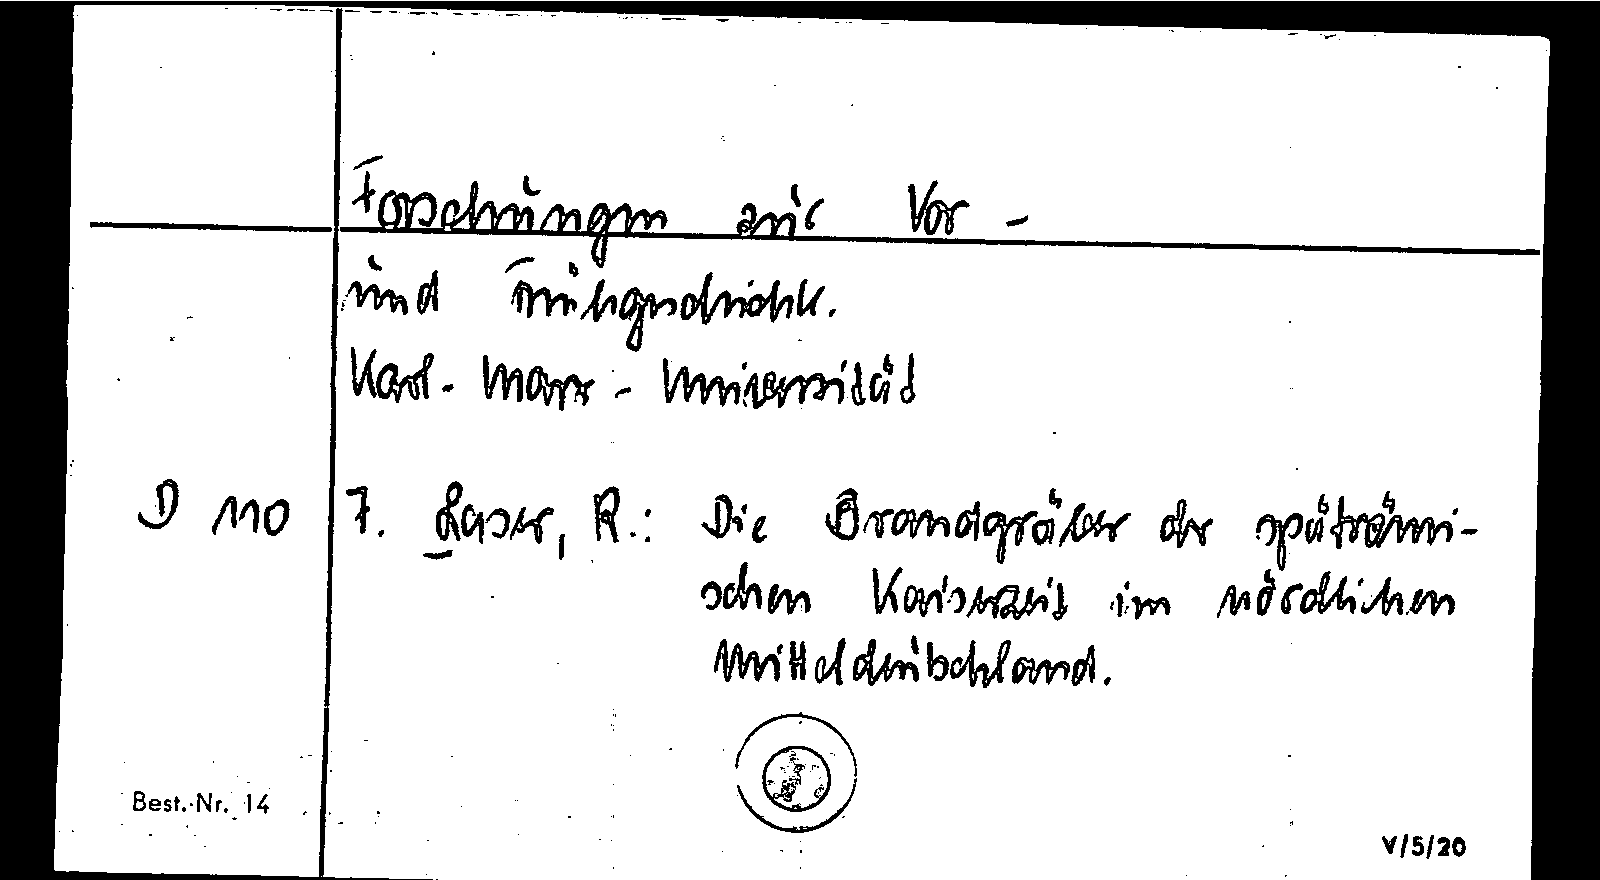 Forschungen zur Vor-
und Frühgeschichte.
Karl-Marx-Universität
D 110 7. Laser, R.: Die Brandgräber der spätrömi-
schen Kaiserzeit im nördlichen
Mitteldeutschland.
Best.-Nr. 14
V/5/20